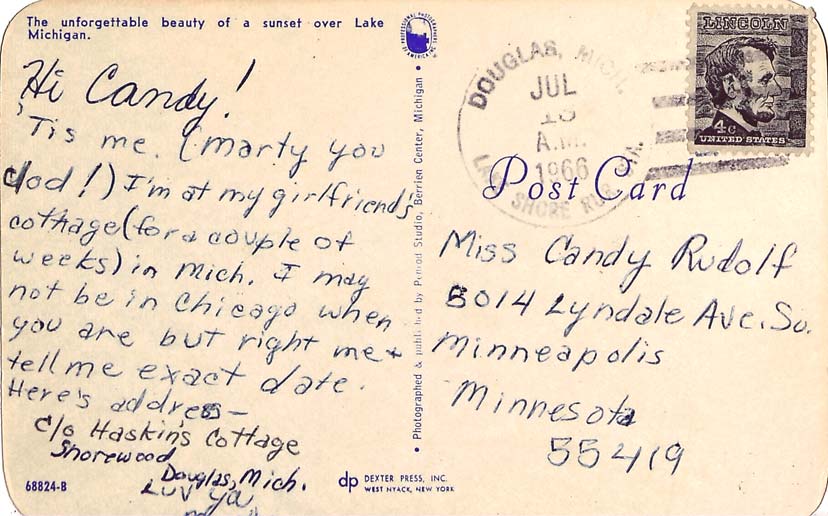 The unforgettable beauty of a sunset over Lake
Michigan.
PROFESSIONAL PHOTOGRAPHERS OF AMERICA INC.
Hi Candy!
'Tis me. (Marty you
clod!) I'm at my girlfriend's
cottage (for a couple of
weeks) in Mich. I may
not be in Chicago when
you are but right me +
tell me exact date.
Here's address—
c/o Haskin's Cottage
Shorewood
Douglas, Mich.
Luv ya
68824-B
Photographed & published by Penrod Studio, Berrien Center, Michigan
dp DEXTER PRESS, INC.
WEST NYACK, NEW YORK
DOUGLAS, MICH.
JUL
A.M.
1966
SHORE RUR. STA.
LINCOLN
4c
UNITED STATES
Post Card
Miss Candy Rudolf
5014 Lyndale Ave. So.
Minneapolis
Minnesota
55419